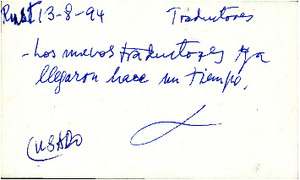 13-8-94 Traductores
- Los nuevos traductores ya
llegaron hace un tiempo.
(USADO